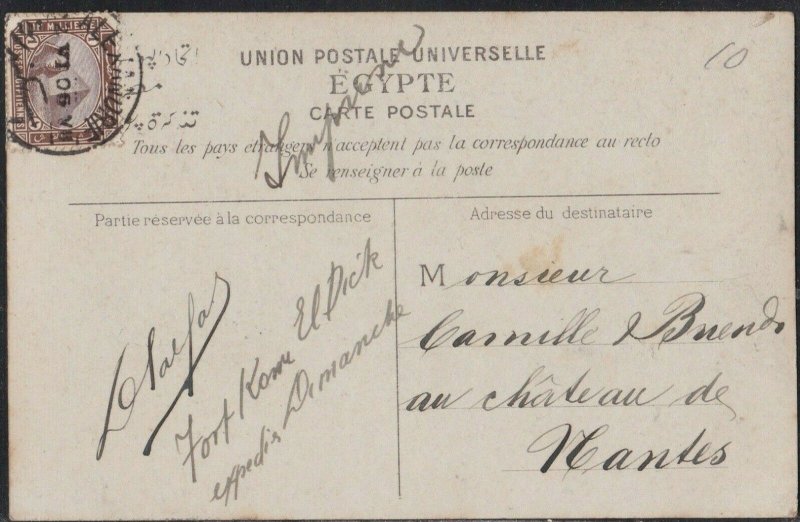 UNION POSTALE UNIVERSELLE
ÉGYPTE
CARTE POSTALE
Tous les pays etrangers n'acceptent pas la correspondance au recto
Se renseigner à la poste
Imprimé
10
Partie réservée à la correspondance
Fort Kom El Dick
expédiée Dimanche
Adresse du destinataire
Monsieur
Camille
au château de
Nantes